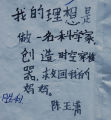 我的理想是
做一名科学家,
创造时空穿梭
器,救回我的
妈妈。
陈王清